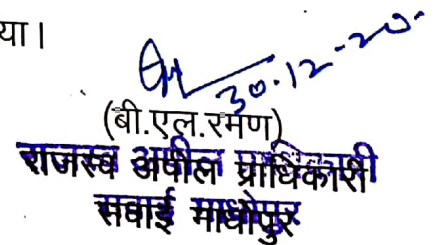 या।
30.12.20.
(बी.एल.रमण)
राजस्व अपील प्राधिकारी
सवाई माधोपुर